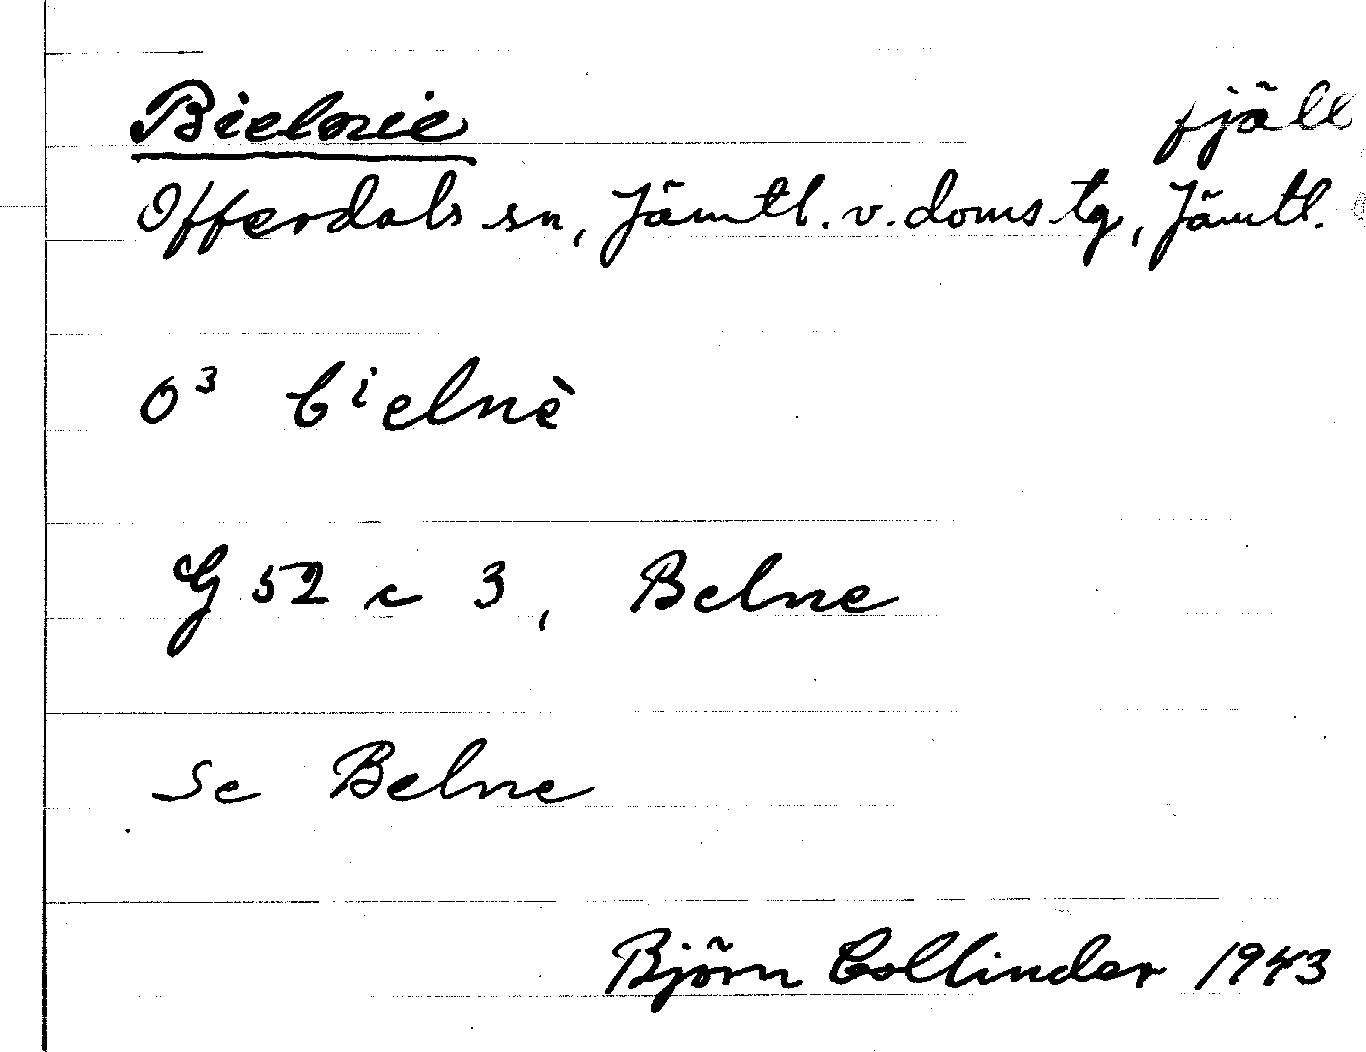 Bielnie fjäll
Offerdals sn, Jämtl. v. doms tg, Jämtl.
O³ bⁱelnè
G 52 c 3, Belne
Se Belne
Björn Collinder 1943